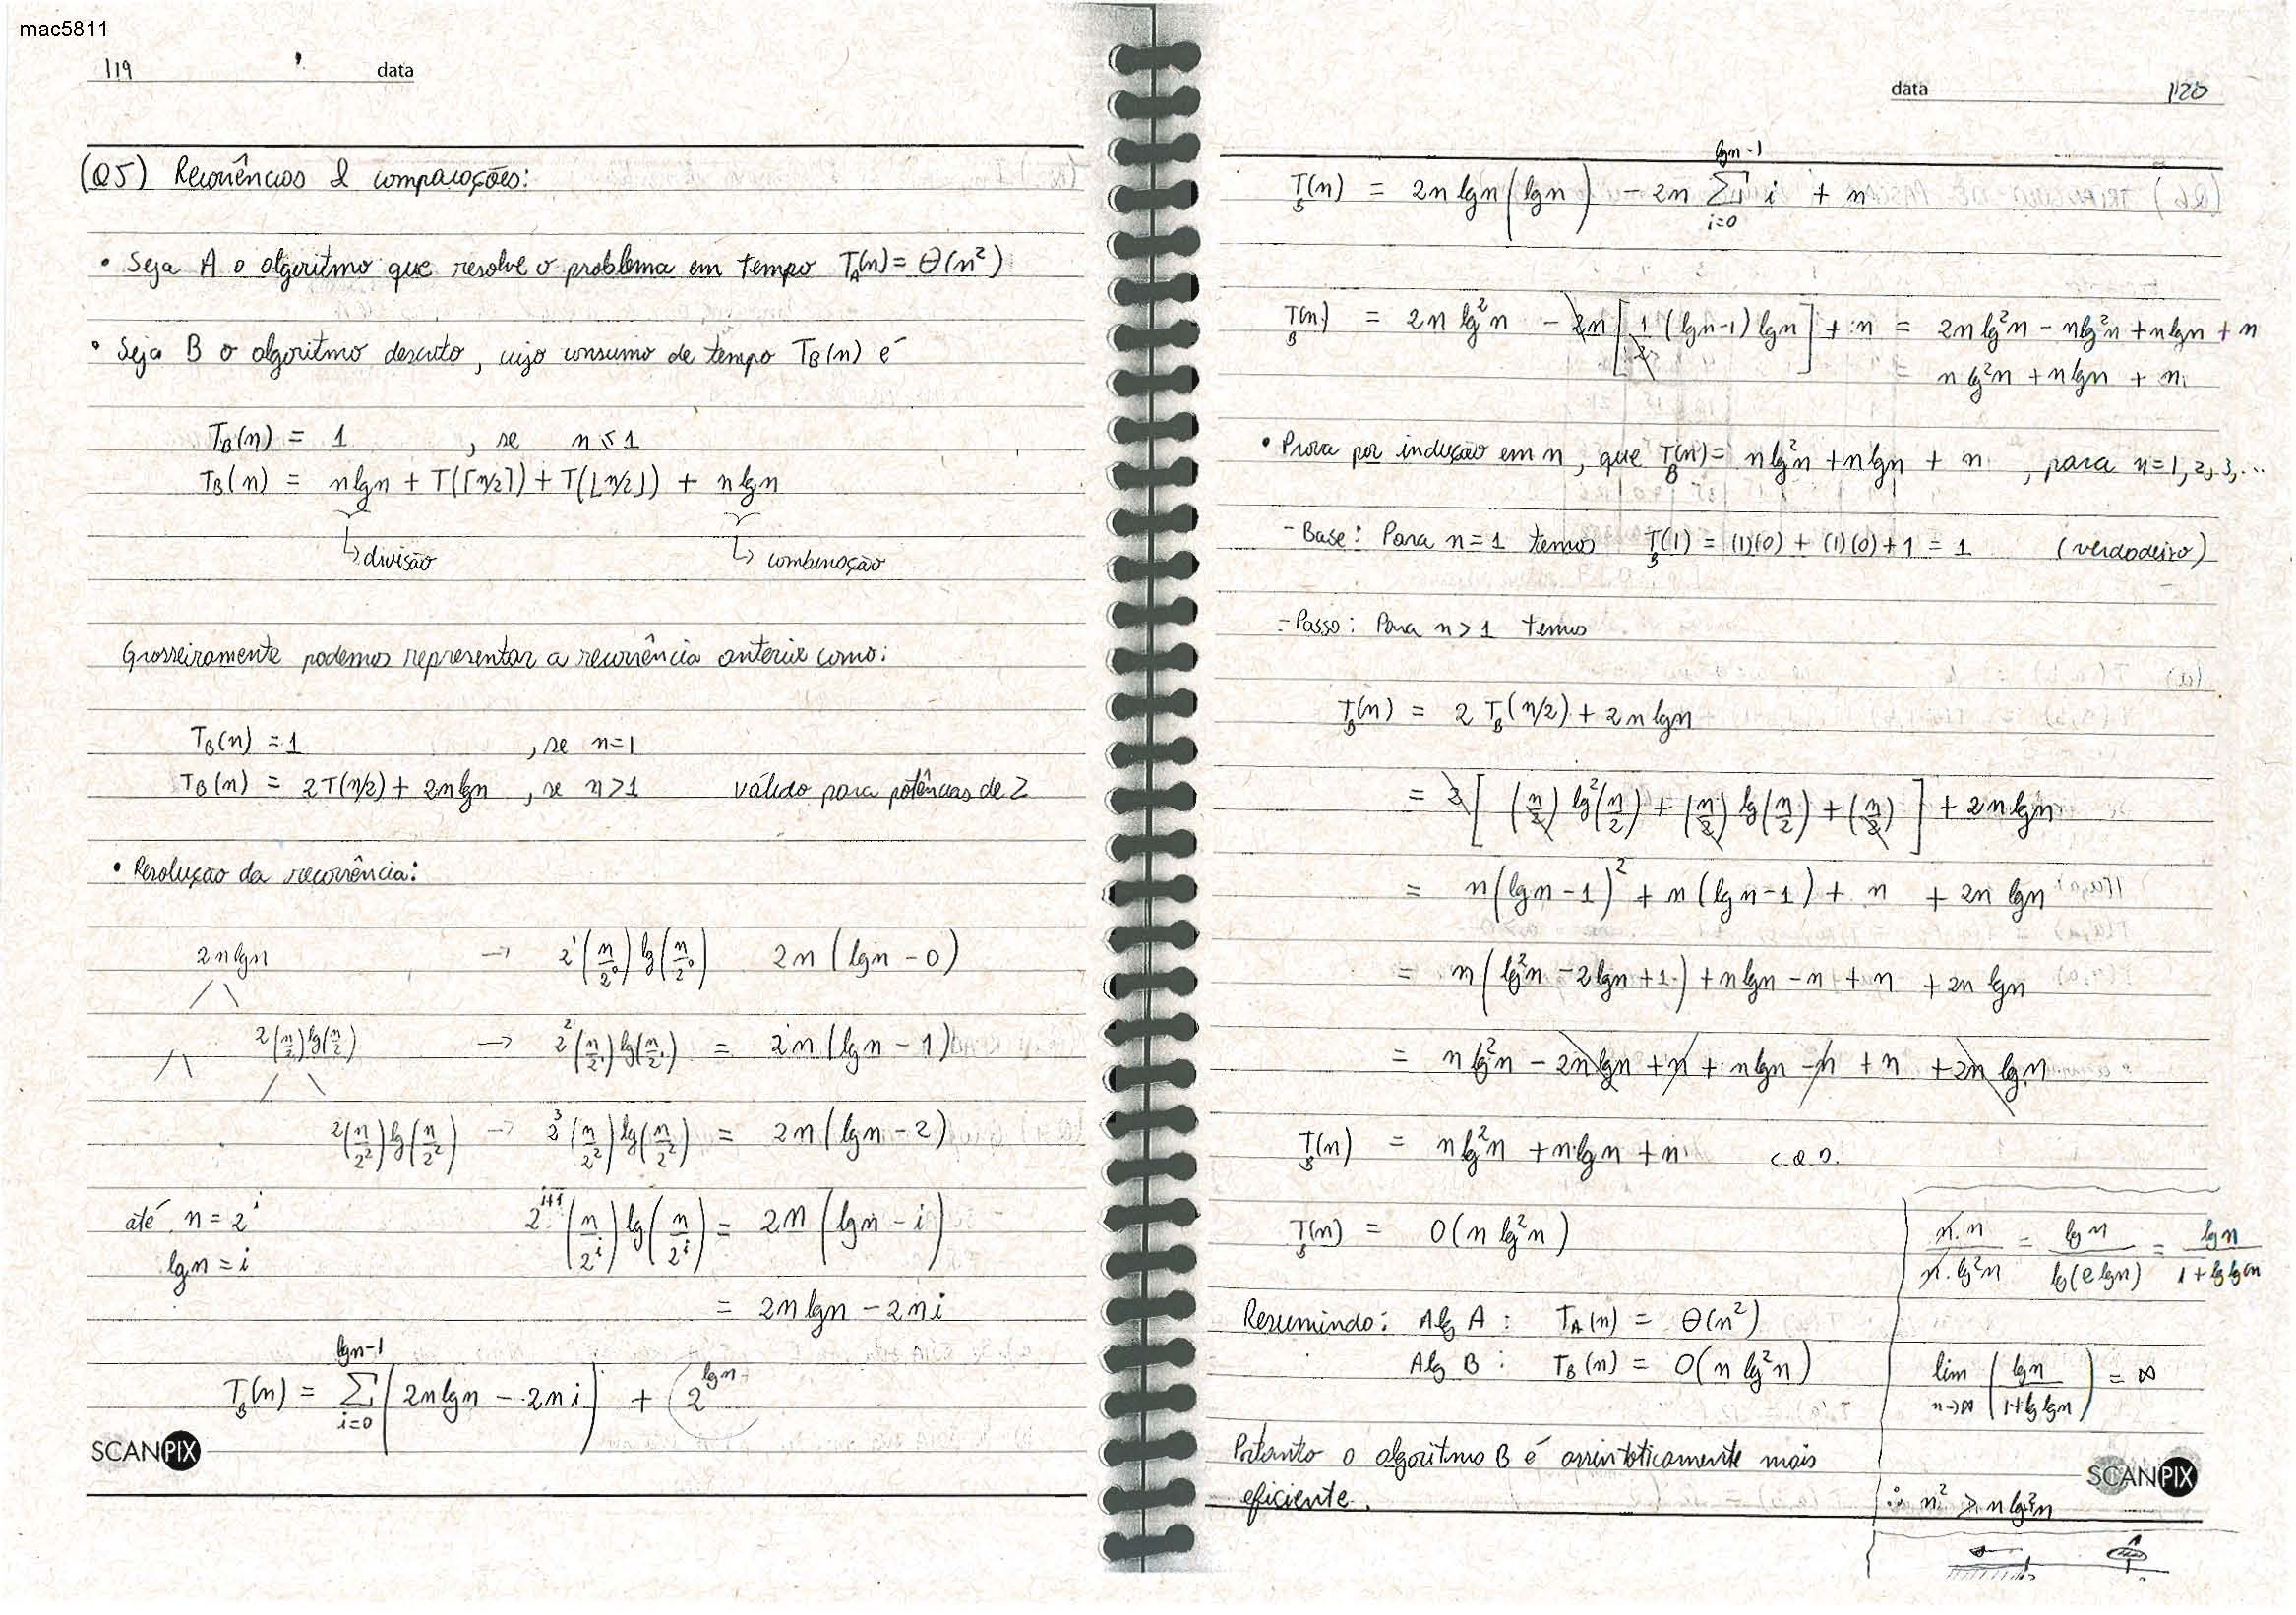 mac5811
119 data
(Q5) Recorrências & comparações:
• Seja A o algoritmo que resolve o problema em tempo T_A(n) = Θ(n²)
• Seja B o algoritmo descrito, cujo consumo de tempo T_B(n) é
T_B(n) = 1 , se n ≤ 1
T_B(n) = n lg n + T(⌈n/2⌉) + T(⌊n/2⌋) + n lg n
↳ divisão ↳ combinação
Grosseiramente podemos representar a recorrência anterior como:
T_B(n) = 1 , se n=1
T_B(n) = 2T(n/2) + 2n lg n , se n>1 válido para potências de 2
• Resolução da recorrência:
2n lg n → 2¹(n/2⁰) lg(n/2⁰) 2n (lg n - 0)
2(n/2) lg(n/2) → 2²(n/2¹) lg(n/2¹) = 2n (lg n - 1)
2(n/2²) lg(n/2²) → 2³(n/2²) lg(n/2²) = 2n (lg n - 2)
até n = 2^i 2^{i+1} (n/2^i) lg(n/2^i) = 2n (lg n - i)
lg n = i
= 2n lg n - 2n i
T_B(n) = Σ_{i=0}^{lg n-1} (2n lg n - 2n i) + 2^{lg n}
SCANPIX
data 120
T_B(n) = 2n lg n (lg n) - 2n Σ_{i=0}^{lg n-1} i + n
T_B(n) = 2n lg²n - 2n [1/2 (lg n-1) lg n] + n = 2n lg²n - n lg²n + n lg n + n
= n lg²n + n lg n + n
• Prova por indução em n, que T_B(n) = n lg²n + n lg n + n , para n=1, 2, 3, ...
- Base: Para n=1 temos T_B(1) = (1)(0) + (1)(0) + 1 = 1 (verdadeiro)
- Passo: Para n>1 temos
T_B(n) = 2 T_B(n/2) + 2n lg n
= 2 [ (n/2) lg²(n/2) + (n/2) lg(n/2) + (n/2) ] + 2n lg n
= n (lg n - 1)² + n (lg n - 1) + n + 2n lg n
= n (lg²n - 2 lg n + 1) + n lg n - n + n + 2n lg n
= n lg²n - 2n lg n + n + n lg n - n + n + 2n lg n
T_B(n) = n lg²n + n lg n + n C.Q.D.
T_B(n) = O(n lg²n)
Resumindo: Alg A : T_A(n) = Θ(n²)
Alg B : T_B(n) = O(n lg²n)
Portanto o algoritmo B é assintoticamente mais
eficiente.
n.n / n.lg²n = lg n / lg(2 lg n) = lg n / 1 + lg lg n
lim_{n→∞} (lg n / 1 + lg lg n) = ∞
∴ n² > n lg²n
SCANPIX